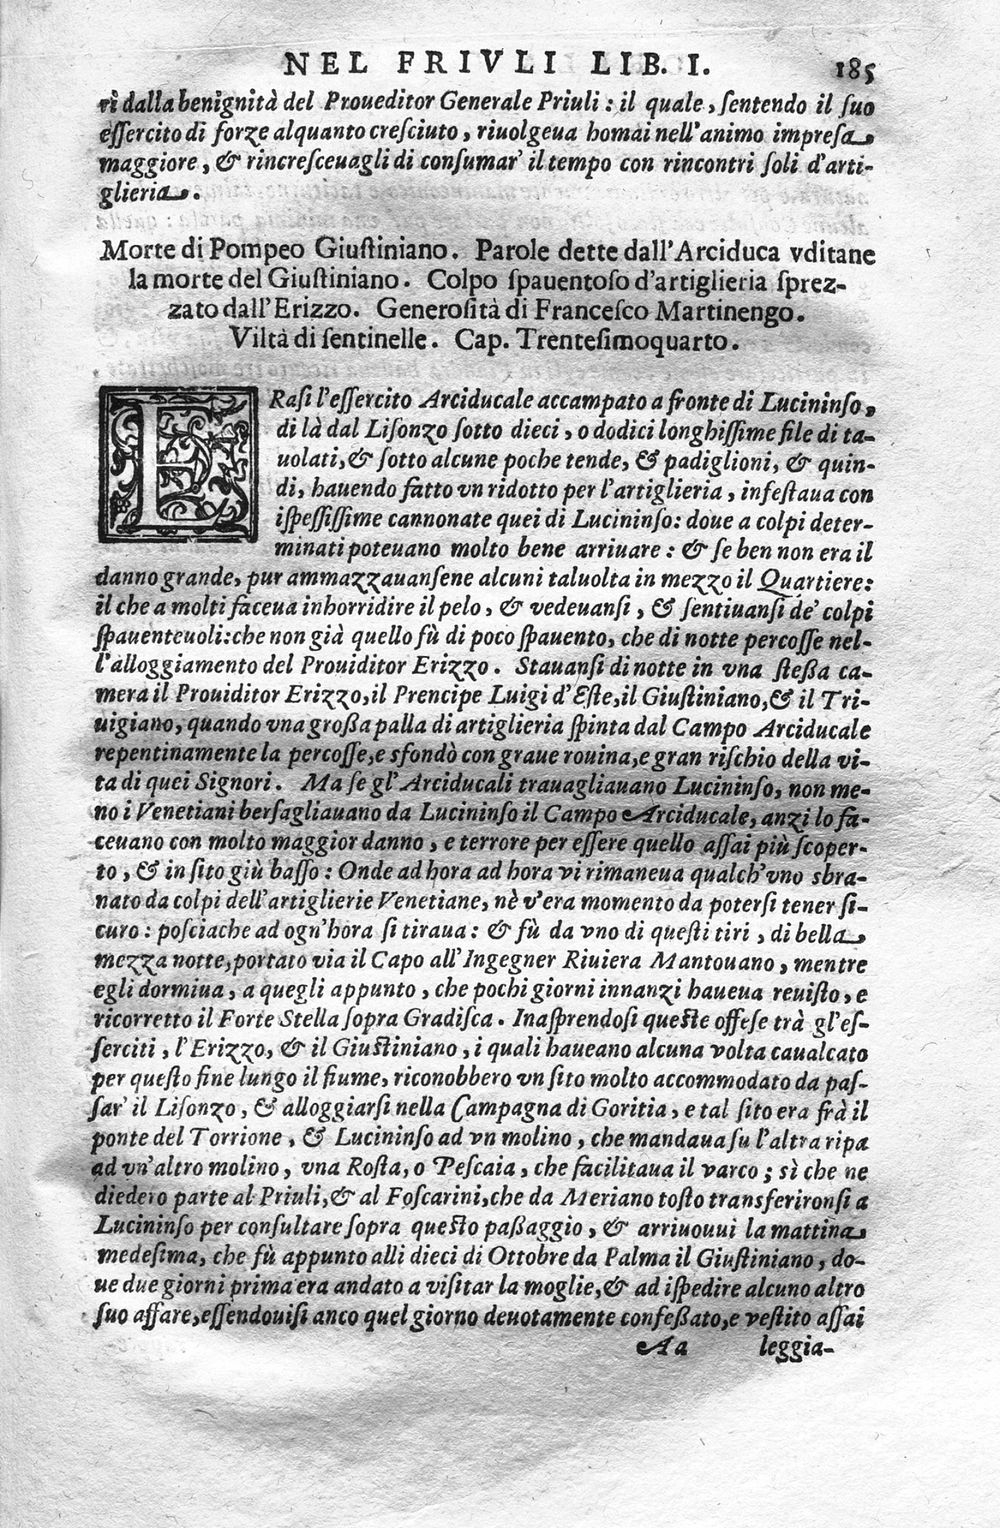 NEL FRIVLI LIB. I. 185
rì dalla benignità del Proueditor Generale Priuli : il quale, ſentendo il ſuo
eſſercito di forze alquanto creſciuto, riuolgeua homai nell'animo impreſa
maggiore, & rincreſceuagli di conſumar' il tempo con rincontri ſoli d'arti-
glieria.
Morte di Pompeo Giuſtiniano. Parole dette dall'Arciduca vditane
la morte del Giuſtiniano. Colpo ſpauentoſo d'artiglieria ſprez-
zato dall'Erizzo. Generoſità di Franceſco Martinengo.
Viltà di ſentinelle. Cap. Trenteſimoquarto.
ERaſi l'eſſercito Arciducale accampato a fronte di Lucininſo,
di là dal Liſonzo ſotto dieci, o dodici longhiſſime file di ta-
uolati, & ſotto alcune poche tende, & padiglioni, & quin-
di, hauendo fatto vn ridotto per l'artiglieria, infeſtaua con
iſpeſſiſſime cannonate quei di Lucininſo: doue a colpi deter-
minati poteuano molto bene arriuare : & ſe ben non era il
danno grande, pur ammazzauanſene alcuni taluolta in mezzo il Quartiere:
il che a molti faceua inhorridire il pelo, & vedeuanſi, & ſentiuanſi de' colpi
ſpauenteuoli: che non già quello fù di poco ſpauento, che di notte percoſſe nel-
l'alloggiamento del Prouiditor Erizzo. Stauanſi di notte in vna ſteßa ca-
mera il Prouiditor Erizzo, il Prencipe Luigi d'Eſte, il Giuſtiniano, & il Tri-
uigiano, quando vna großa palla di artiglieria ſpinta dal Campo Arciducale
repentinamente la percoſſe, e sfondò con graue rouina, e gran riſchio della vi-
ta di quei Signori. Ma ſe gl'Arciducali trauagliauano Lucininſo, non me-
no i Venetiani berſagliauano da Lucininſo il Campo Arciducale, anzi lo fa-
ceuano con molto maggior danno, e terrore per eſſere quello aſſai più ſcoper-
to, & in ſito giù baſſo : Onde ad hora ad hora vi rimaneua qualch'vno sbra-
nato da colpi dell'artiglierie Venetiane, nè v'era momento da poterſi tener ſi-
curo : poſciache ad ogn'hora ſi tiraua : & fù da vno di queſti tiri, di bella
mezza notte, portato via il Capo all'Ingegner Riuiera Mantouano, mentre
egli dormiua, a quegli appunto, che pochi giorni innanzi haueua reuiſto, e
ricorretto il Forte Stella ſopra Gradiſca. Inaſprendoſi queſte offeſe trà gl'eſ-
ſerciti, l'Erizzo, & il Giuſtiniano, i quali haueano alcuna volta caualcato
per queſto fine lungo il fiume, riconobbero vn ſito molto accommodato da paſ-
ſar' il Liſonzo, & alloggiarſi nella Campagna di Goritia, e tal ſito era frà il
ponte del Torrione, & Lucininſo ad vn molino, che mandaua ſu l'altra ripa
ad vn'altro molino, vna Roſta, o Peſcaia, che facilitaua il varco; sì che ne
diedero parte al Priuli, & al Foſcarini, che da Meriano toſto transferironſi a
Lucininſo per conſultare ſopra queſto paßaggio, & arriuouui la mattina
medeſima, che fù appunto alli dieci di Ottobre da Palma il Giuſtiniano, do-
ue due giorni prima era andato a viſitar la moglie, & ad iſpedire alcuno altro
ſuo affare, eſſendouiſi anco quel giorno deuotamente confeßato, e veſtito aſſai
Aa leggia-